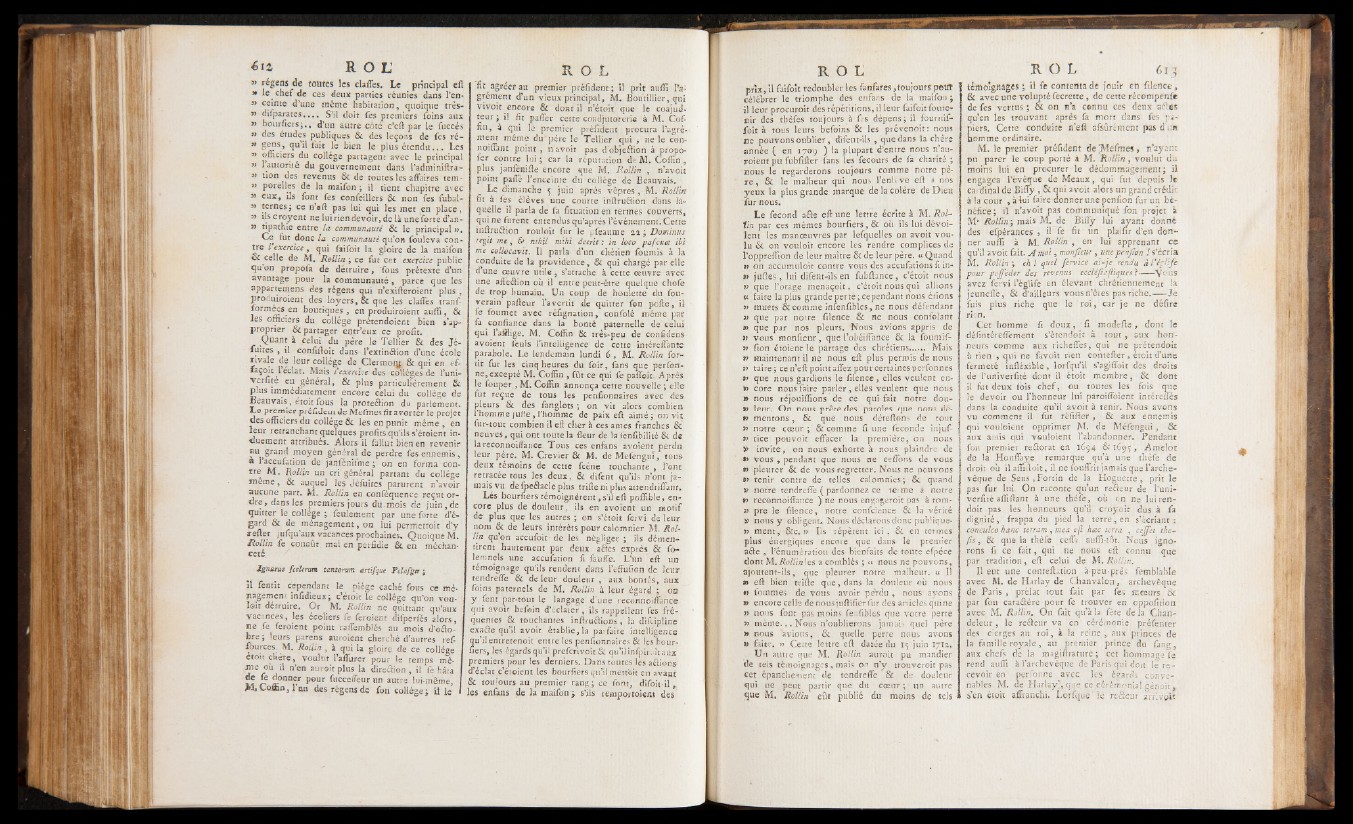 612 ROL
» régens de toutes les classes. Le principal est
» le chef de ces deux parties réunies dans l'en-
» ceinte d'une même habitation, quoique très-
» disparates.... S'il doit ses premiers soins aux
» boursiers;.. d'un autre côté c'est par le succès
» des études publiques & des leçons de ses ré-
» gens, qu'il fait le bien le plus étendu... Les
» officiers du collège partagent avec le principal
» l'autorité du gouvernement dans l'administra-
» tion des revenus & de toutes les affaires tem-
» porelles de la maison; il tient chapitre avec
» eux, ils sont ses conseillers & non ses subal-
» ternes; ce n'est pas lui qui les met en place,
» ils croyent ne lui rien devoir, de là une sorte d'an-
» tipathie entre la communauté & le principal ».
Ce fut donc la communauté qu'on souleva con-
tre l'exercice, qui faisoit la gloire de la maison
& celle de M. Rollin; ce fut cet exercice public
qu'on proposa de détruire, sous prétexte d'un
avantage pour la communauté, parce que les
appartemens des régens qui n'existeroient plus,
produiroient des loyers, & que les classes trans-
formées en boutiques, en produiroient aussi, &
les officiers du collège prétendoient bien s'ap-
proprier & partager entr'eux ce profit.
Quant à celui du père le Tellier & des Jé-
suites, il consistoit dans l'extinction d'une école
rivale de leur collège de Clermont & qui en ef-
façoit l'éclat. Mais l'exercice des collèges de l'uni-
versité en général, & plus particulièrement &
plus immédiatement encore celui du collège de
Beauvais, étoit sous la protection du parlement.
Le premier président de Mesmes fit avorter le projet
des officiers du collège & les en punit même, en
leur retranchant quelques profits qu'ils s'étoient in-
duement attribués. Alors il fallut bien en revenir
au grand moyen général de perdre ses ennemis,
à l'accusation de jansénisme; on en forma con-
tre M. Rollin un cri général partant du collège
même, & auquel les Jésuites parurent n'avoir
aucune part. M. Rollin en conséquence reçut or-
dre, dans les premiers jours du mois de juin, de
quitter le collège; seulement par une sorte d'é-
gard & de ménagement, on lui permettoit d'y
rester jusqu'aux vacances prochaines. Quoique M.
Rollin se connût mal en perfidie & en méchan-
ceté
Ignarus scelerum tantorum artisque Pelasgæ;
il sentit cependant le piège caché sous ce mé-
nagement insidieux; c'étoit le collège qu'on vou-
loit détruire. Or M. Rollin ne quittant qu'aux
vacances, les écoliers se seroient dispersés alors,
ne se seroient point rassemblés au mois d'octo-
bre; leurs parens auroient cherché d'autres res-
sources. M. Rollin, à qui la gloire de ce collège
étoit chère, voulut l'assurer pour le temps mê-
me où il n'en auroit plus la direction, il se hâta
de se donner pour successeur un autre lui-même,
M. Coffin, l'un des régens de son collège; il le
ROL
fit agréer au premier président; il prit aussi l'a-
grément d'un vieux principal, M. Boutillier, qui
vivoit encore & dont il n'étoit que le coadju-
teur; il fit passer cette coadjutorerie à M. Cof-
fin, à qui le premier président procura l'agré-
ment même du père le Tellier qui, ne le con-
noissant point, n'avoit pas d'objection à propo-
ser contre lui; car la réputation de M. Coffin,
plus janséniste encore que M. Rollin, n'avoit
point passé l'enceinte du collège de Beauvais.
Le dimanche 5 juin après vêpres, M. Rollin
fit à ses élèves une courte instruction dans la-
quelle il parla de sa situation en termes couverts,
qui ne furent entendus qu'après l'événement. Cette
instruction rouloit sur le pseaume 22; Dominus
regit me, & nihil mihi deerit: in loco pascuæ ibi
me collocavit. Il parla d'un chérien fournis à la
conduite de la providence, & qui chargé par elle
d'une œuvre utile, s'attache à cette œuvre avec
une affection où il entre peut-être quelque chose
de trop humain. Un coup de houlette du sou-
verain pasteur l'avertit de quitter son poste, il
se soumet avec résignation, consolé même par
sa confiance dans la bonté paternelle de celui
qui l'afflige. M. Coffin & très-peu de confidens
avoient seuls l'intelligence de cette intéressante
parabole. Le lendemain lundi 6, M. Rollin sor-
tit sur les cinq heures du soir, sans que person-
ne, excepté M. Coffin, sût ce qui se passoit. Après
le souper, M. Coffin annonça cette nouvelle; elle
fut reçue de tous les pensionnaires avec des
pleurs & des sanglots; on vit alors combien
l'homme juste, l'homme de paix est aimé; on vit
sur-tout combien il est cher à ces ames franches &
neuves, qui ont toute la fleur de la sensibilité & de
la reconnoissance. Tous ces enfans avoient perdu
leur père. M. Crevier & M. de Mésengui, tous
deux témoins de cette scène touchante, l'ont
retracée tous les deux, & disent qu'ils n'ont ja-
mais vu de spectacle plus triste ni plus attendrissant.
Les boursiers témoignèrent, s'il est possible, en-
core plus de douleur, ils en avoient un motif
de plus que les autres; on s'étoit servi de leur
nom & de leurs intérêts pour calomnier M. Rol-
lin qu'on accusoit de les négliger; ils démen-
tirent hautement par deux actes exprès & so-
lemnels une accusation si fausse. L'un est un
témoignage qu'ils rendent dans l'effusion de leur
tendresse & de leur douleur, aux bontés, aux
soins paternels de M. Rollin à leur égard; on
y sent par-tout le langage d'une reconnoissance
qui avoit besoin d'éclater, ils rappellent ses fré-
quentes & touchantes instructions, la discipline
exacte qu'il avoit établie, la parfaite intelligence
qu'il entretenoit entre les pensionnaires & les bour-
siers, les égards qu'il prescrivoit & qu'il inspiroit aux
premiers pour les derniers. Dans toutes les actions
d'éclat c'étoient les boursiers qu'il mettoit en avant
& toujours au premier rang; ce sont, disoit-il,
les enfans de la maison; s'ils remportoient des
ROL
prix, il faisoit redoubler les fanfares, toujours pour
célébrer le triomphe des enfans de la maison;
il leur procuroit des répétitions, il leur faisoit soute-
nir des thèses toujours à ses dépens; il fournis-
soit à tous leurs besoins & les prévenoit: nous
ne pouvons oublier, disent-ils, que dans la chère
année ( en 1709 ) la plupart d'entre nous n'au-
roient pu subsister sans les secours de sa charité;
nous le regarderons toujours comme notre pè-
re, & le malheur qui nous l'enlève est à nos
yeux la plus grande marque de la colère de Dieu
sur nous.
Le second acte est une lettre écrite à M. Rol-
lin par ces mêmes boursiers, & où ils lui dévoi-
lent les manœuvres par lesquelles on avoit vou-
lu & on vouloit encore les rendre complices de
l'oppression de leur maître & de leur père. « Quand
» on accumuloit contre vous des accusations si in-
» justes, lui disent-ils en substance, c'étoit nous
» que l'orage menaçoit, c'étoit nous qui allions
» faire la plus grande perte; cependant nous étions
» muets & comme insensibles, ne nous défendant
» que par notre silence & ne nous consolant
» que par nos pleurs. Nous avions appris de
» vous monsieur, que l'obéissance & la soumis-
» sion étoient le partage des chrétiens..... Mais
» maintenant il ne nous est plus permis de nous
» taire; ce n'est point assez pour certaines personnes
» que nous gardions le silence, elles veulent en-
» core nous faire parler, elles veulent que nous
» nous réjouissions de ce qui fait notre dou-
» leur. On nous prête des paroles que nous dé-
» mentons, & que nous détestons de tout
» notre cœur; & comme si une seconde injus-
» tice pouvoit effacer la première, on nous
» invite, on nous exhorte à nous plaindre de
» vous, pendant que nous ne cessons de vous
» pleurer & de vous regretter. Nous ne pouvons
» tenir contre de telles calomnies; & quand
» notre tendresse ( pardonnez ce terme à notre
» reconnoissance ) ne nous engageroit pas à rom-
» pre le silence, notre conscience & la vérité
» nous y obligent. Nous déclarons donc publique-
» ment, &c. » Ils répètent ici, & en termes
plus énergiques encore que dans le premier
acte, l'énumération des bienfaits de toute espèce
dont M. Rollin les a comblés; « nous ne pouvons,
ajoutent-ils, que pleurer notre malheur. « Il
» est bien triste que, dans la douleur où nous
» sommes de vous avoir perdu, nous ayons
» encore celle de nous justifier sur des articles qui ne
» nous sont pas moins sensibles que votre perte
» même... Nous n'oublierons jamais quel père
» nous avions, & quelle perte nous avons
» faite. » Cette lettre est datée du 15 juin 1712.
Un autre que M. Rollin auroit pu mandier
de tels témoignages, mais on n'y trouveroit pas
cet épanchement de tendresse & de douleur
qui ne peut partir que du cœur; un autre
que M. Rollin eût publié du moins de tels
ROL 613
témoignages; il se contenta de jouir en silence,
& avec une volupté secrette, de cette récompense
de ses vertus; & on n'a connu ces deux actes
qu'en les trouvant après sa mort dans ses pa-
piers. Cette conduite n'est assûrément pas d'un
homme ordinaire.
M. le premier président de Mesmes, n'ayant
pu parer le coup porté à M. Rollin, voulut du
moins lui en procurer le dédommagement; il
engagea l'évêque de Meaux, qui fut depuis le
cardinal de Bissy, & qui avoit alors un grand crédit
à la cour, à lui faire donner une pension sur un bé-
néfice; il n'avoit pas communiqué son projet à
M. Rollin; mais M. de Bissy lui ayant donné
des espérances, il se fit un plaisir d'en don-
ner aussi à M. Rollin, en lui apprenant ce
qu'il avoit fait. A moi, monsieur, une pension! s'écria
M. Rollin; eh! quel service ai-je rendu à l'église
pour posséder des revenus ecclésiastiques? —Vous
avez servi l'église en élevant chrétiennement la
jeunesse, & d'ailleurs vous n'êtes pas riche.—Je
suis plus riche que le roi, car je ne désire
rien.
Cet homme si doux, si modeste, dont le
désintéressement s'étendoit à tout, aux hon-
neurs comme aux richesses, qui ne prétendoit
à rien, qui ne savoit rien contester, étoit d'une
fermeté inflexible, lorsqu'il s'agissoit des droits
de l'université dont il étoit membre, & dont
il fut deux fois chef, ou toutes les fois que
le devoir ou l'honneur lui paroissoient intéressés
dans la conduite qu'il avoit à tenir. Nous avons
vu comment il sut résister, & aux ennemis
qui vouloient opprimer M. de Mésengui, &
aux amis qui vouloient l'abandonner. Pendant
son premier rectorat en 1694 & 1695, Amelot
de la Houssaye remarque qu'à une thèse de
droit où il assistoit, il ne souffrit jamais que l'arche-
vêque de Sens, Fortin de la Hoguette, prit le
pas sur lui. On raconte qu'un recteur de l'uni-
versité assistant à une thèse, où on ne lui ren-
doit pas les honneurs qu'il croyoit dus à sa
dignité, frappa du pied la terre, en s'écriant:
conculco hanc terram, mea est hæc terra, cesset the-
sis, & que la thèse cessa aussi-tôt. Nous igno-
rons si ce fait, qui ne nous est connu que
par tradition, est celui de M. Rollin.
Il eut une contestation à-peu-près semblable
avec M. de Harlay de Chanvalon, archevêque
de Paris, prélat tout fait par ses mœurs &
par son caractère pour se trouver en opposition
avec M. Rollin. On sait qu'à la fête de la Chan-
deleur, le recteur va en cérémonie présenter
des cierges au roi, à la reine, aux princes de
la famille royale, au premier prince du sang,
aux chefs de la magistrature; cet hommage se
rend aussi à l'archevêque de Paris qui doit le re-
cevoir en personne avec les égards conve-
nables. M. de Harlay, que ce cérémonial gênoit,
s'en étoit affranchi. Lorsque le recteur arrivoit